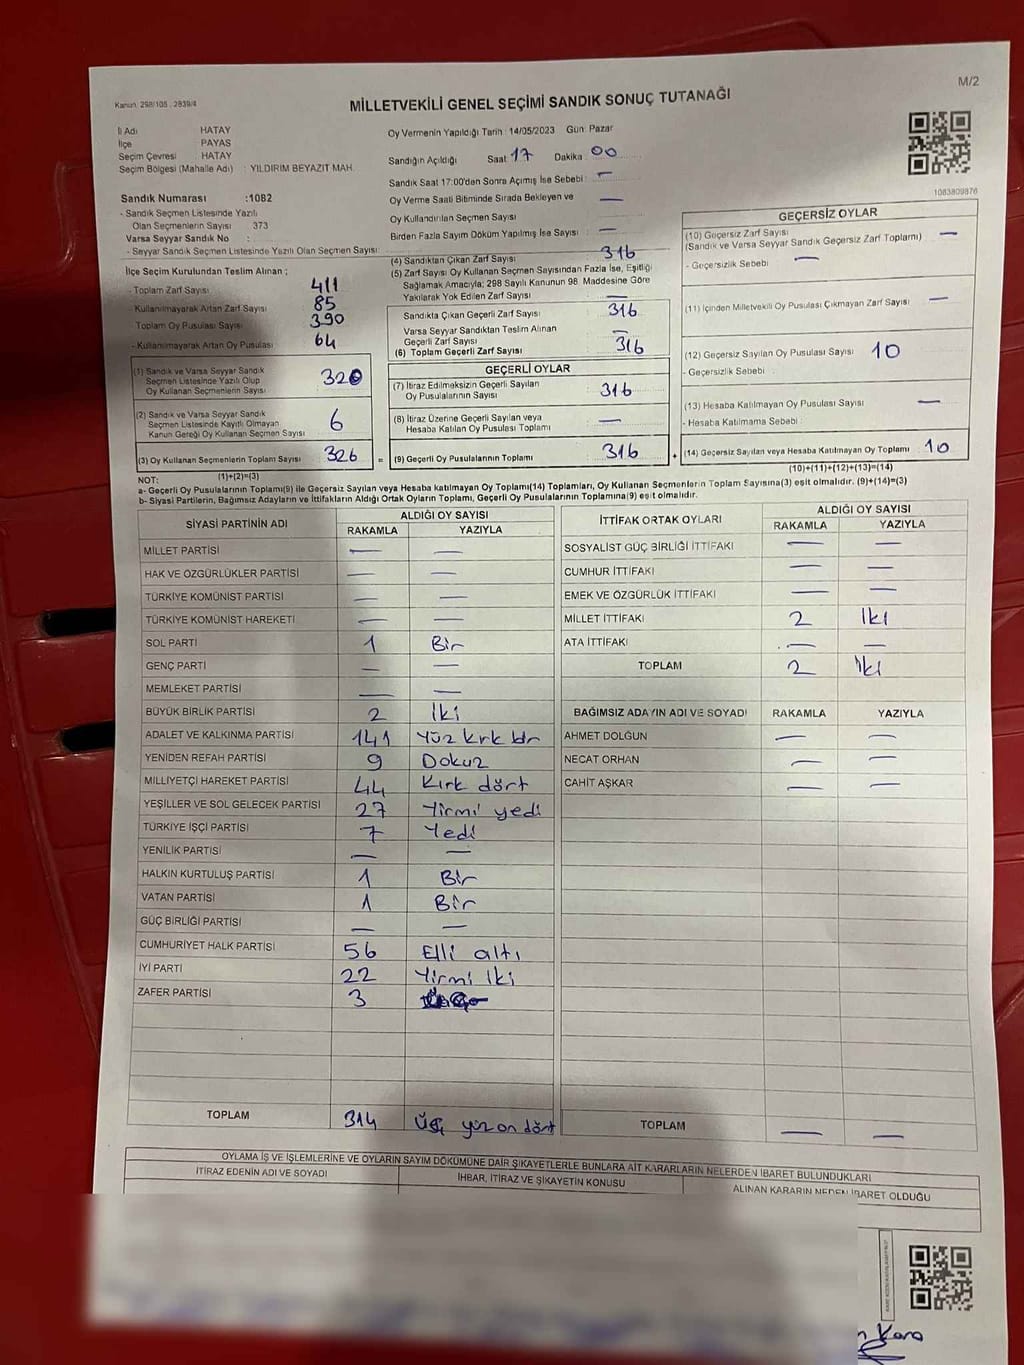 M/2
Kanun: 298/105 , 2839/4
MİLLETVEKİLİ GENEL SEÇİMİ SANDIK SONUÇ TUTANAĞI
İl Adı HATAY
İlçe PAYAS
Seçim Çevresi HATAY
Seçim Bölgesi (Mahalle Adı) : YILDIRIM BEYAZIT MAH.
Sandık Numarası :1082
- Sandık Seçmen Listesinde Yazılı
Olan Seçmenlerin Sayısı 373
Varsa Seyyar Sandık No :
- Seyyar Sandık Seçmen Listesinde Yazılı Olan Seçmen Sayısı:
İlçe Seçim Kurulundan Teslim Alınan ;
- Toplam Zarf Sayısı 411
- Kullanılmayarak Artan Zarf Sayısı 85
- Toplam Oy Pusulası Sayısı 390
- Kullanılmayarak Artan Oy Pusulası 64
(1) Sandık ve Varsa Seyyar Sandık
Seçmen Listesinde Yazılı Olup
Oy Kullanan Seçmenlerin Sayısı 320
(2) Sandık ve Varsa Seyyar Sandık
Seçmen Listesinde Kayıtlı Olmayan
Kanun Gereği Oy Kullanan Seçmen Sayısı 6
(3) Oy Kullanan Seçmenlerin Toplam Sayısı 326
(1)+(2)=(3)
Oy Vermenin Yapıldığı Tarih : 14/05/2023 Gün: Pazar
Sandığın Açıldığı Saat 17 Dakika 00
Sandık Saat 17:00'den Sonra Açılmış İse Sebebi : —
Oy Verme Saati Bitiminde Sırada Bekleyen ve
Oy Kullandırılan Seçmen Sayısı —
Birden Fazla Sayım Döküm Yapılmış İse Sayısı : —
(4) Sandıktan Çıkan Zarf Sayısı 316
(5) Zarf Sayısı Oy Kullanan Seçmen Sayısından Fazla İse, Eşitliği
Sağlamak Amacıyla; 298 Sayılı Kanunun 98. Maddesine Göre
Yakılarak Yok Edilen Zarf Sayısı —
Sandıkta Çıkan Geçerli Zarf Sayısı 316
Varsa Seyyar Sandıktan Teslim Alınan
Geçerli Zarf Sayısı —
(6) Toplam Geçerli Zarf Sayısı 316
GEÇERLİ OYLAR
(7) İtiraz Edilmeksizin Geçerli Sayılan
Oy Pusulalarının Sayısı 316
(8) İtiraz Üzerine Geçerli Sayılan veya
Hesaba Katılan Oy Pusulası Toplamı —
= (9) Geçerli Oy Pusulalarının Toplamı 316 +
1083809876
GEÇERSİZ OYLAR
(10) Geçersiz Zarf Sayısı
(Sandık ve Varsa Seyyar Sandık Geçersiz Zarf Toplamı) —
- Geçersizlik Sebebi : —
(11) İçinden Milletvekili Oy Pusulası Çıkmayan Zarf Sayısı —
(12) Geçersiz Sayılan Oy Pusulası Sayısı 10
- Geçersizlik Sebebi :
(13) Hesaba Katılmayan Oy Pusulası Sayısı —
- Hesaba Katılmama Sebebi :
(14) Geçersiz Sayılan veya Hesaba Katılmayan Oy Toplamı 10
(10)+(11)+(12)+(13)=(14)
NOT:
a- Geçerli Oy Pusulalarının Toplamı(9) ile Geçersiz Sayılan veya Hesaba katılmayan Oy Toplamı(14) Toplamları, Oy Kullanan Seçmenlerin Toplam Sayısına(3) eşit olmalıdır. (9)+(14)=(3)
b- Siyasi Partilerin, Bağımsız Adayların ve İttifakların Aldığı Ortak Oyların Toplamı, Geçerli Oy Pusulalarının Toplamına(9) eşit olmalıdır.
SİYASİ PARTİNİN ADI ALDIĞI OY SAYISI
RAKAMLA YAZIYLA
MİLLET PARTİSİ — —
HAK VE ÖZGÜRLÜKLER PARTİSİ — —
TÜRKİYE KOMÜNİST PARTİSİ — —
TÜRKİYE KOMÜNİST HAREKETİ — —
SOL PARTİ 1 Bir
GENÇ PARTİ — —
MEMLEKET PARTİSİ — —
BÜYÜK BİRLİK PARTİSİ 2 İki
ADALET VE KALKINMA PARTİSİ 141 Yüz kırk bir
YENİDEN REFAH PARTİSİ 9 Dokuz
MİLLİYETÇİ HAREKET PARTİSİ 44 Kırk dört
YEŞİLLER VE SOL GELECEK PARTİSİ 27 Yirmi yedi
TÜRKİYE İŞÇİ PARTİSİ 7 Yedi
YENİLİK PARTİSİ — —
HALKIN KURTULUŞ PARTİSİ 1 Bir
VATAN PARTİSİ 1 Bir
GÜÇ BİRLİĞİ PARTİSİ — —
CUMHURİYET HALK PARTİSİ 56 Elli altı
İYİ PARTİ 22 Yirmi iki
ZAFER PARTİSİ 3
TOPLAM 314 Üç yüz on dört
İTTİFAK ORTAK OYLARI ALDIĞI OY SAYISI
RAKAMLA YAZIYLA
SOSYALİST GÜÇ BİRLİĞİ İTTİFAKI — —
CUMHUR İTTİFAKI — —
EMEK VE ÖZGÜRLÜK İTTİFAKI — —
MİLLET İTTİFAKI 2 İki
ATA İTTİFAKI — —
TOPLAM 2 İki
BAĞIMSIZ ADAYIN ADI VE SOYADI RAKAMLA YAZIYLA
AHMET DOLĞUN — —
NECAT ORHAN — —
CAHİT AŞKAR — —
TOPLAM — —
OYLAMA İŞ VE İŞLEMLERİNE VE OYLARIN SAYIM DÖKÜMÜNE DAİR ŞİKAYETLERLE BUNLARA AİT KARARLARIN NELERDEN İBARET BULUNDUKLARI
İTİRAZ EDENİN ADI VE SOYADI İHBAR, İTİRAZ VE ŞİKAYETİN KONUSU ALINAN KARARIN NEDEN İBARET OLDUĞU
Kara